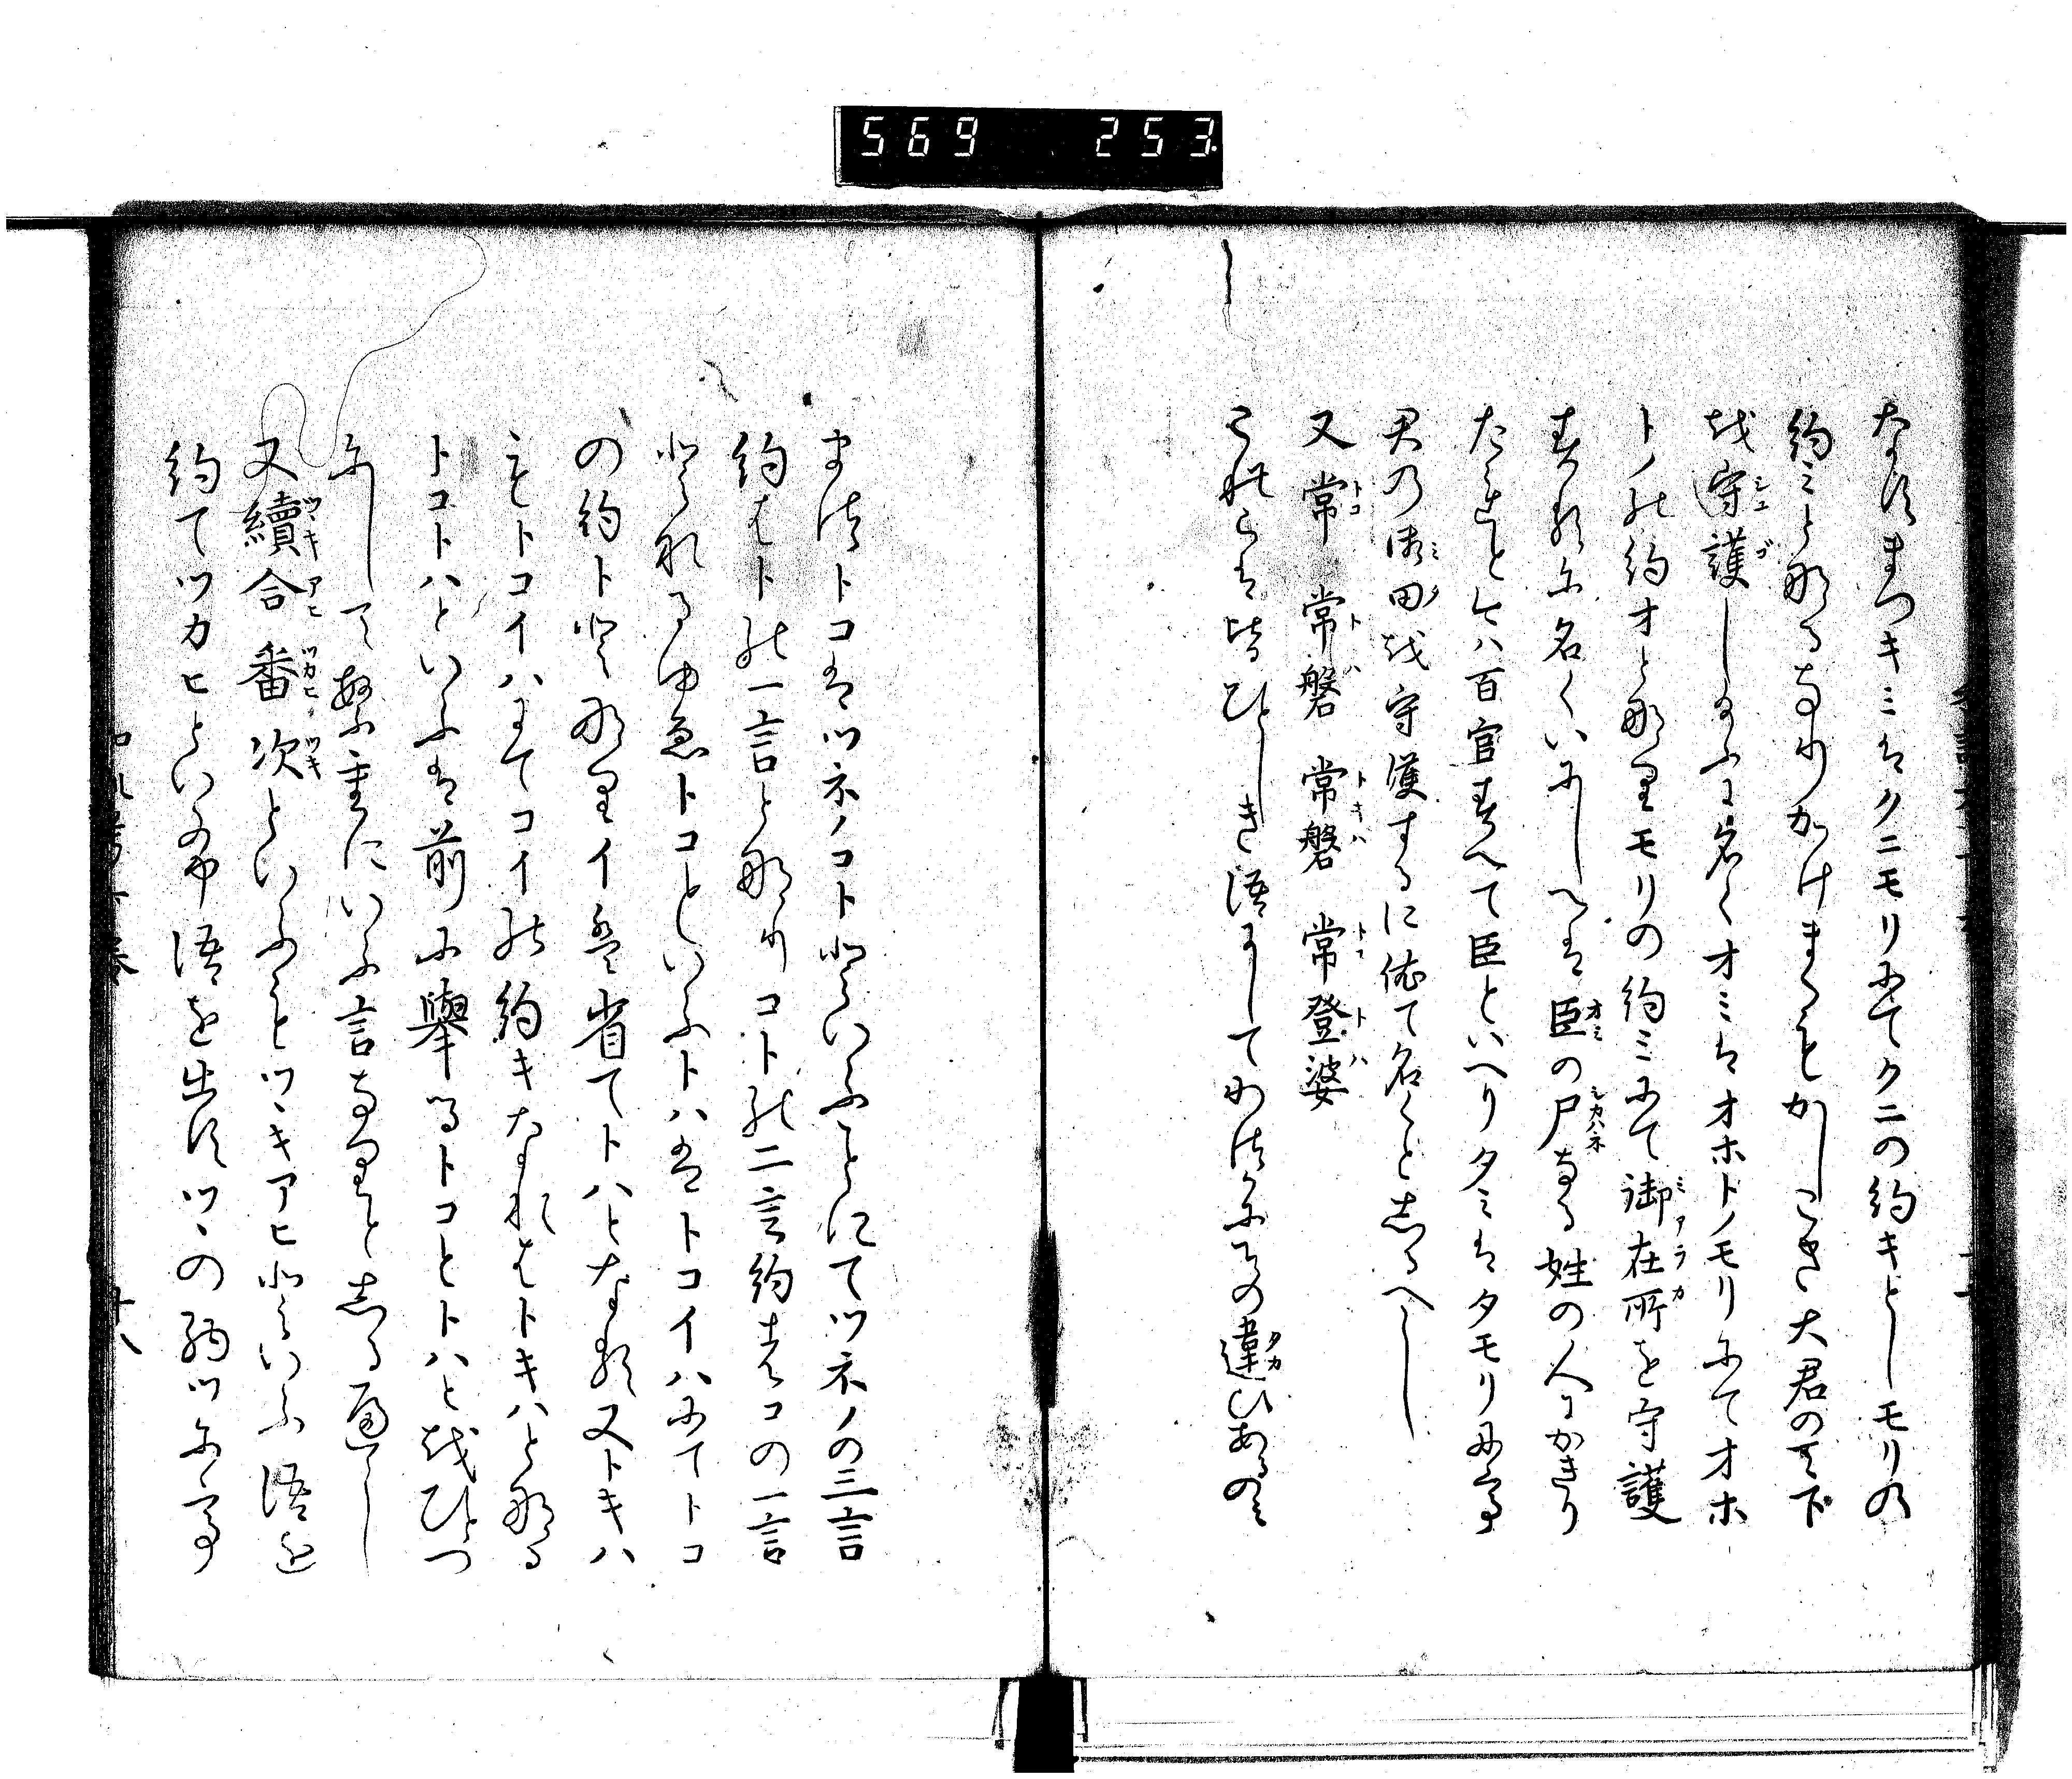 569 253
なほまつキミはクニモリにてクニの約キとしモリの
約ミと那るなりかけまくもかしこき大君の天下
越守護し給ふに名くオミはオホトノモリにてオホ
トノ能約オと那里モリの約ミにて御在所を守護
春类に名くいにしへは臣の尸なる姓の人にかきり
たること今ハ百官春へて臣といへりタミはタモリにて
君の御田越守護するに依て名くと志るへし
又 常 常磐 常磐 常登婆
これらは皆ひとしき語にしてわつかにその違ひあるのミ
まつトコはツネノコトといふことにてツネノの三言
約はト能一言と那りコト能二言約まるコの一言
となれるゆゑトコといふトハはトコイハにてトコ
の約トと那里イを省てトハとなる又トキハ
もトコイハにてコイ能約キなれはトキハと那る
トコトハといふは前に舉るトコとトハと越ひとつ
にして幾重にいふ言なりと志る遍し
又續合番次といふことツヽキアヒといふ語を
約てツカヒといふ語を出すツヽの約ツにて
十八